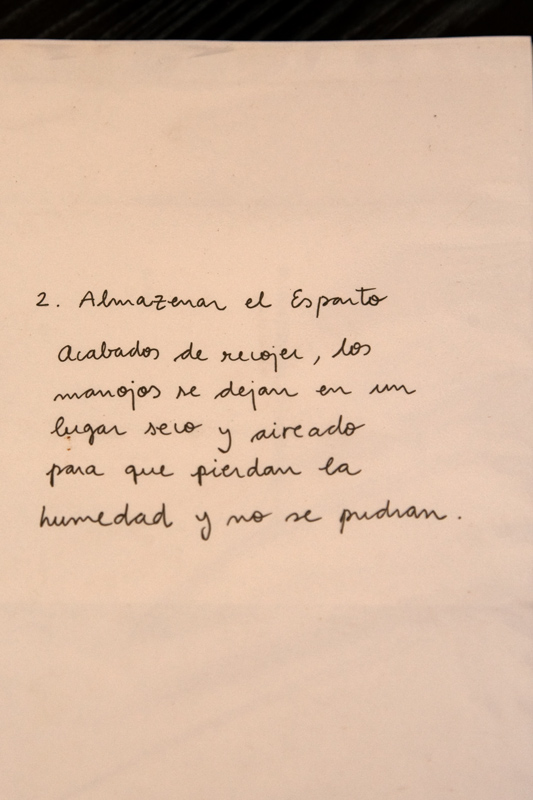 2. Almazenar el Esparto
Acabados de recojer, los
manojos se dejan en un
lugar seco y aireado
para que pierdan la
humedad y no se pudran.